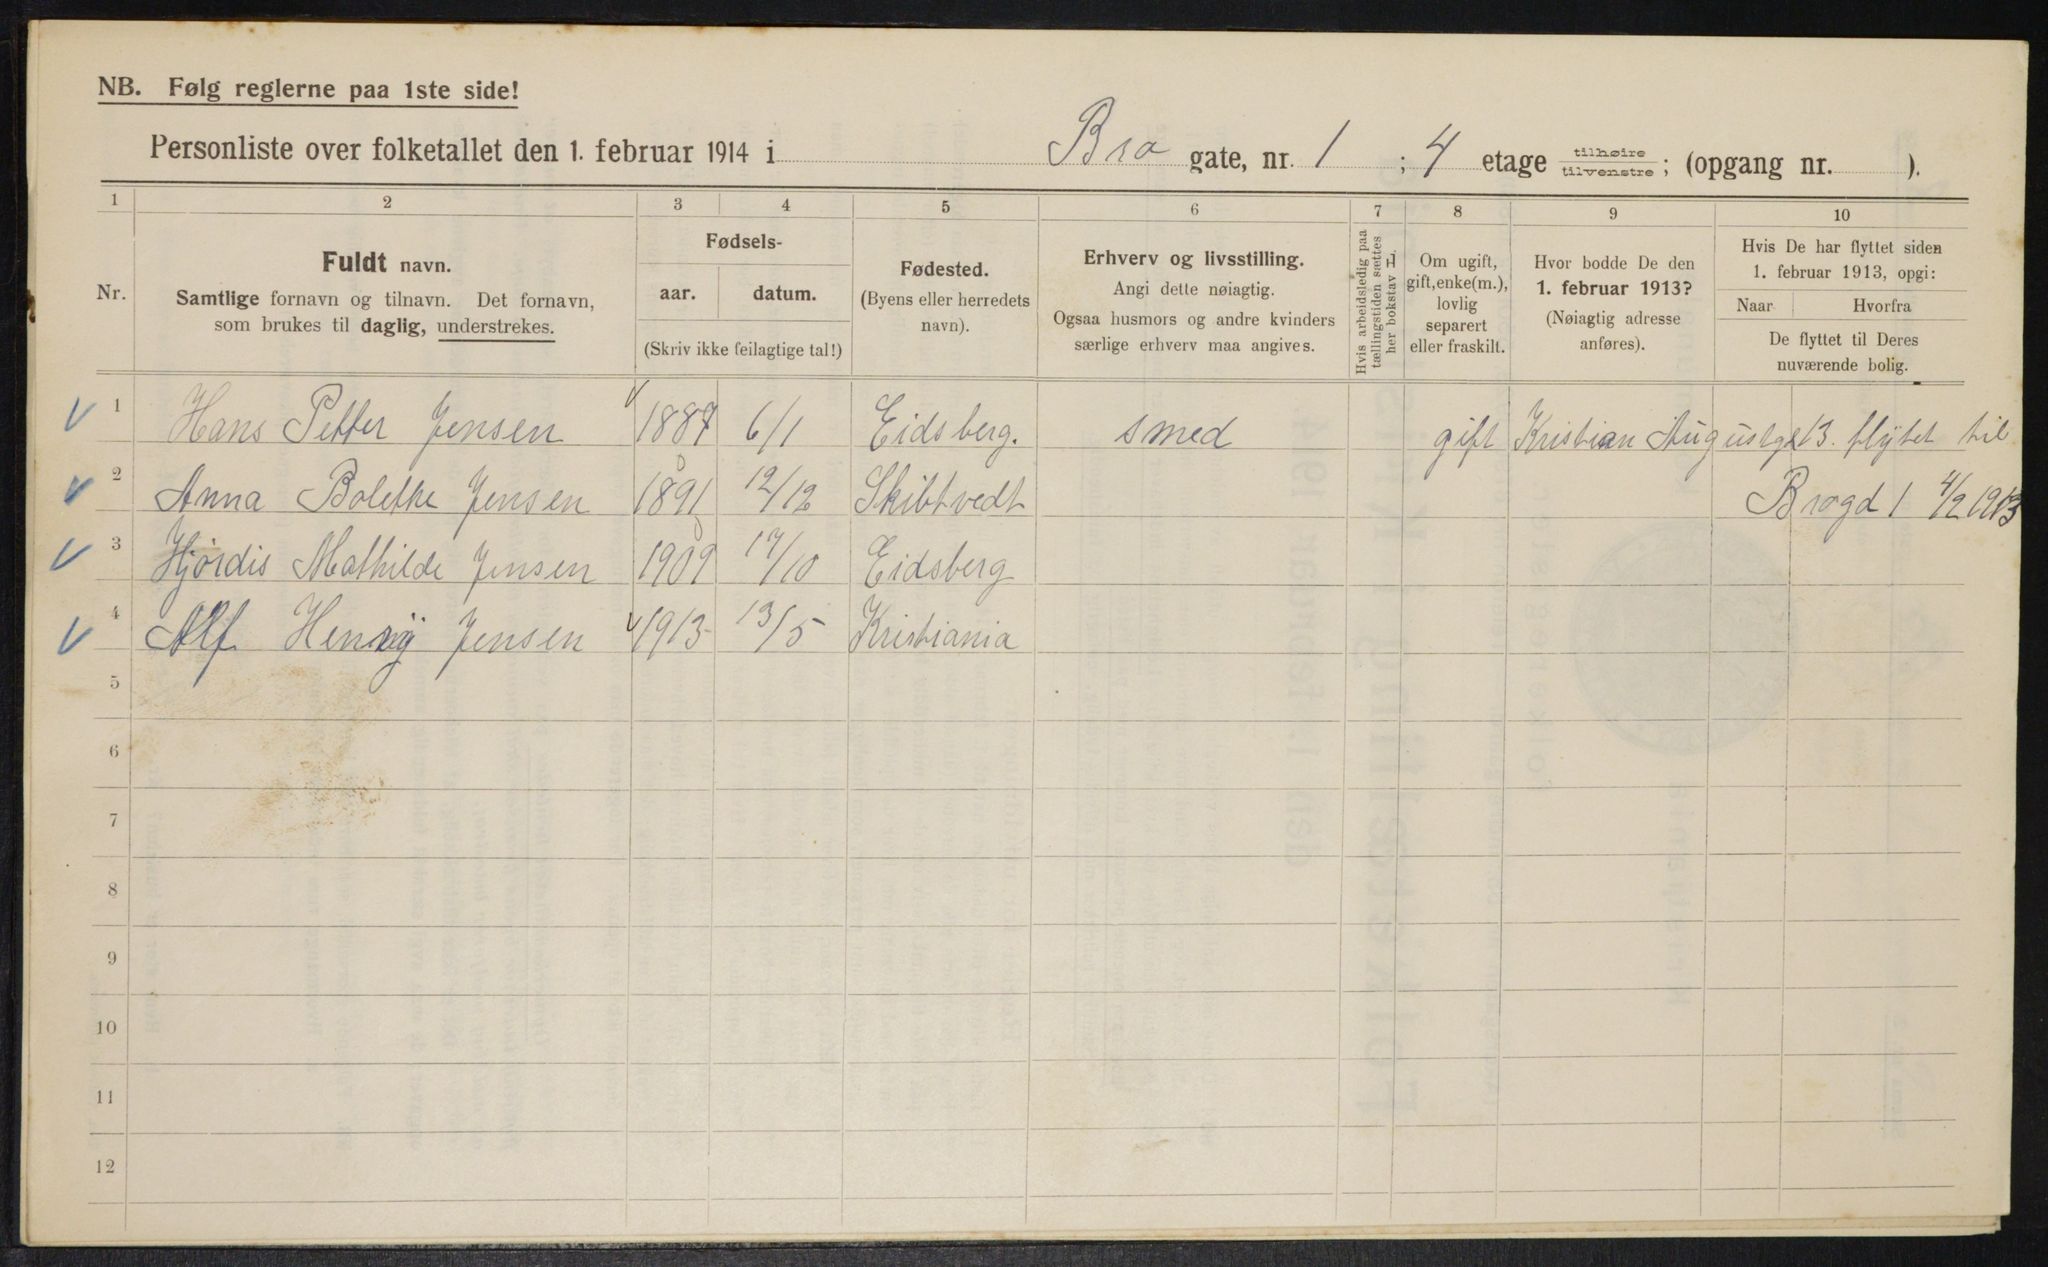 NB. Følg reglerne paa 1ste side!
Personliste over folketallet den 1. februar 1914 i Bro gate, nr. 1 ; 4 etage tilhøire/tilvenstre; (opgang nr. ).
1 2 3 4 5 6 7 8 9 10
Nr.
Fuldt navn.
Samtlige fornavn og tilnavn. Det fornavn,
som brukes til daglig, understrekes.
Fødsels-
aar. datum.
(Skriv ikke feilagtige tal!)
Fødested.
(Byens eller herredets
navn).
Erhverv og livsstilling.
Angi dette nøiagtig.
Ogsaa husmors og andre kvinders
særlige erhverv maa angives.
Hvis arbeidsledig paa
tællingstiden sættes
her bokstav L.
Om ugift,
gift, enke(m.),
lovlig
separert
eller fraskilt.
Hvor bodde De den
1. februar 1913?
(Nøiagtig adresse
anføres).
Hvis De har flyttet siden
1. februar 1913, opgi:
Naar Hvorfra
De flyttet til Deres
nuværende bolig.
1 Hans Petter Jensen 1887 6/1 Eidsberg. smed gift Kristian Augustgt 13. flytet til
2 Anna Bolethe Jensen 1891 12/12 Skibtvedt Brogd 1 4/2 1913
3 Hjørdis Mathilde Jensen 1909 17/10 Eidsberg
4 Alf Henry Jensen 1913 13/5 Kristiania
5
6
7
8
9
10
11
12